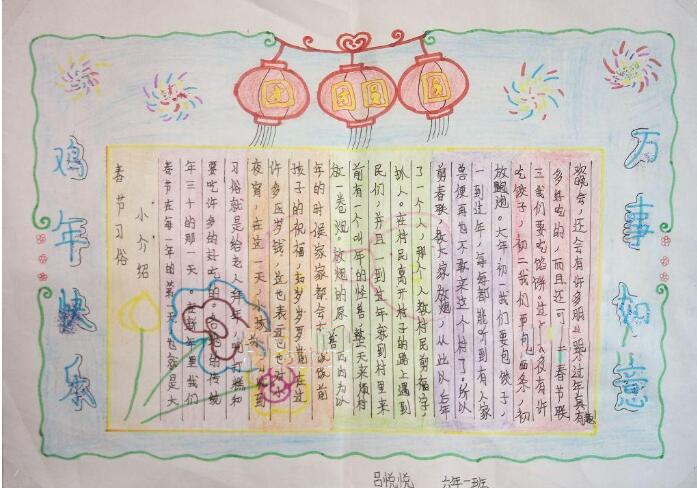 团团圆圆
鸡年快乐
万事如意
春节习俗
小介绍
春节在每一年的第一天也就是大
年三十的那一天。在新年里我们
要吃许多的好吃的。各地的传统
习俗就是给老人拜年，糕和
夜宵，在这一天，小孩到
许多压岁钱，这也表
孩子的祝福，如岁岁平安。在过
年的时候家家都会前
放一卷炮。放炮的原因是因为以
前有一个叫年的怪兽整天来烦村
民们，并且一到过年就到村里来
抓人。在村民离开村子的路上遇到
了一个人，那个人教村民剪福字
剪春联，教大家放炮，从此以后年
兽便再也不敢来这个村了，所以
一到过年，每每都能听到有人家
放鞭炮。大年初一我们要包饺子，
吃饺子，初二我们要吃面条，初
三我们要吃馅饼。过年有许
多好吃的，而且还可春节联
欢晚会，还会有许多朋友过年真有趣
吕悦悦 六年一班